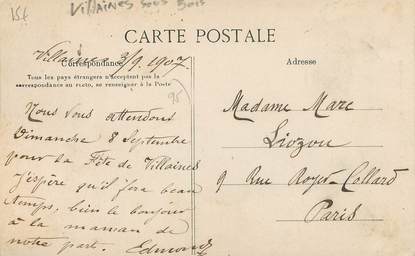 15€
Villaines sous Bois
CARTE POSTALE
Villaines 3/9 1907.
Correspondance
Adresse
Tous les pays étrangers n'acceptent pas la
correspondance au recto, se renseigner à la Poste
95
Nous vous attendons
Dimanche 8 Septembre
pour la Fête de Villaines
J'espère qu'il fera beau
temps, bien le bonjour
à la maman de
notre part. Edmond
Madame Marc
Liozon
9 Rue Royer-Collard
Paris